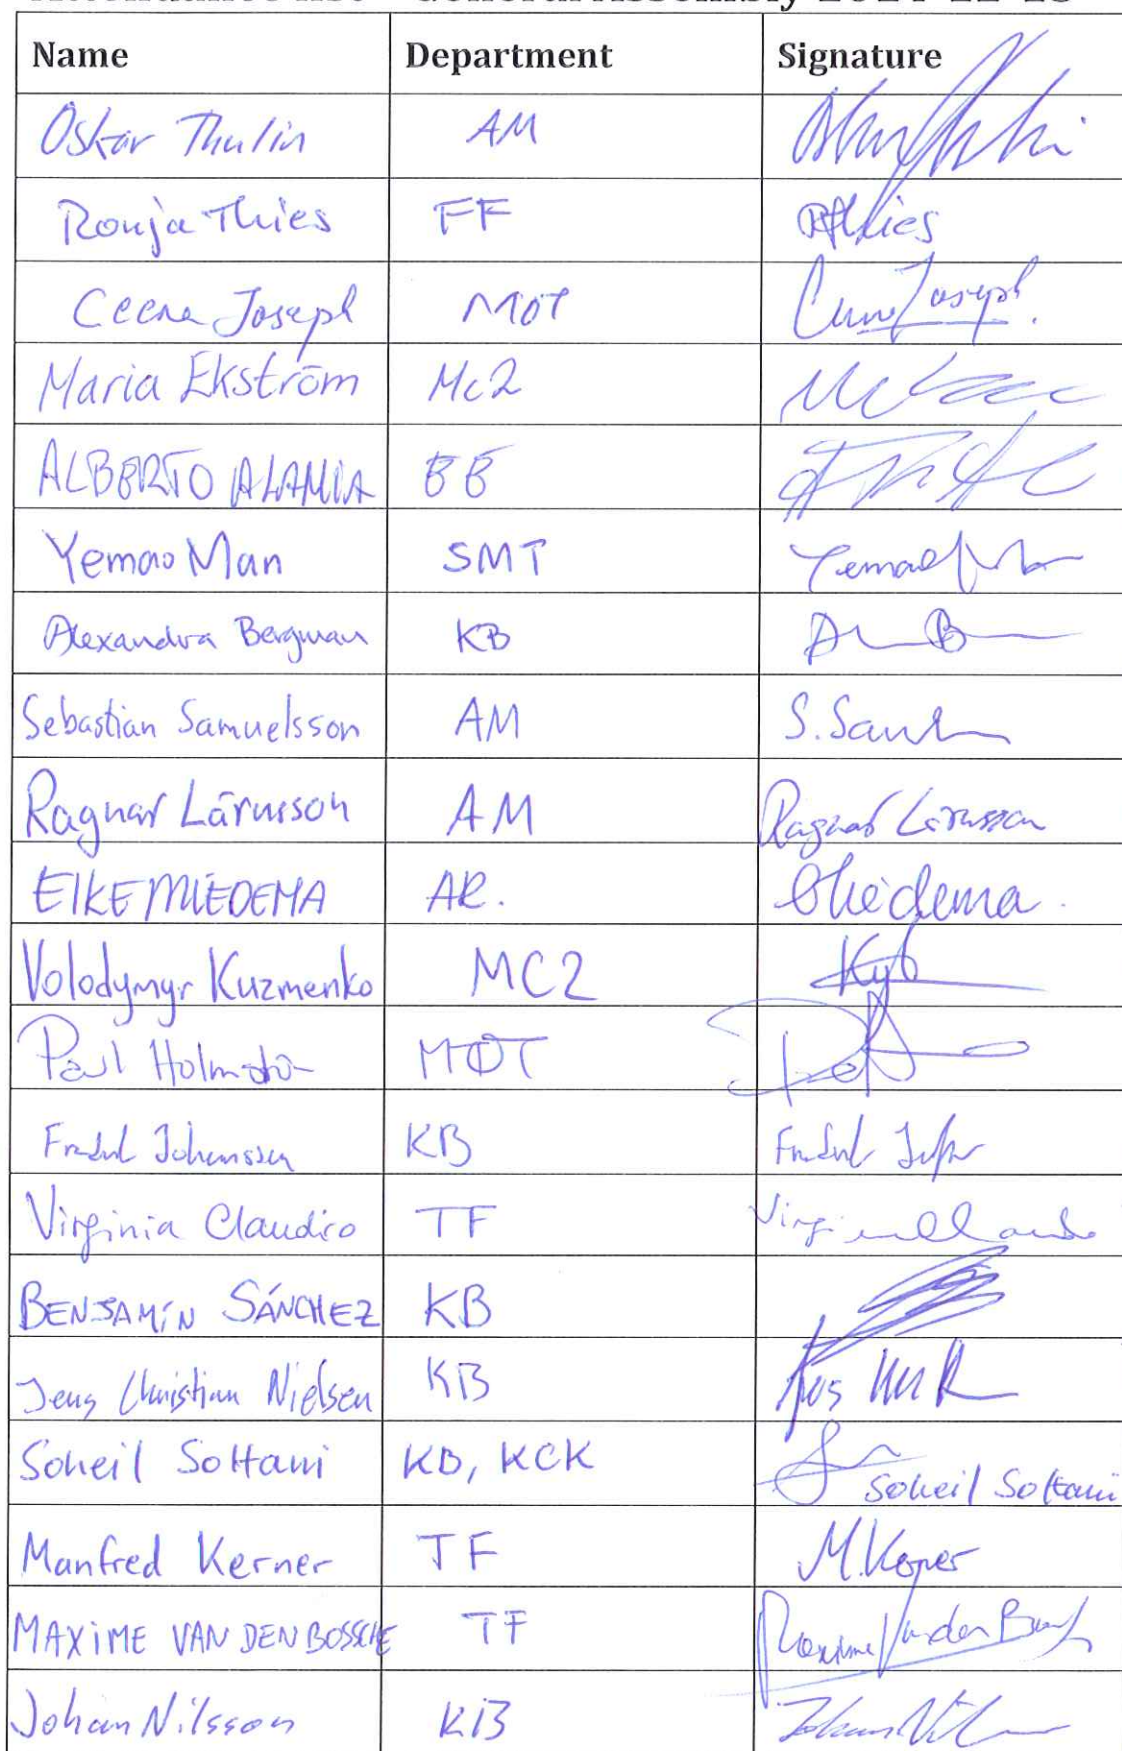 Name Department Signature
Oskar Thulin AM
Ronja Thies FF RThies
Ceena Joseph MOT Joseph.
Maria Ekström Mc2
ALBERTO ALAMIA EE
Yemao Man SMT Yemao
Alexandra Bergman KB
Sebastian Samuelsson AM S. Sam
Ragnar Lárusson AM Ragnar Lárusson
ELKE MIEDEMA AR. Miedema.
Volodymyr Kuzmenko MC2
Paul Holmström MOT
Johansson KB
Virginia Claudio TF
BENJAMÍN SÁNCHEZ KB
Jens Christian Nielsen KB
Soheil Soltani KB, KCK Soheil Soltani
Manfred Kerner TF M. Kerner
MAXIME VAN DEN BOSSCHE TF Maxime Van den
Johan Nilsson KB Johan